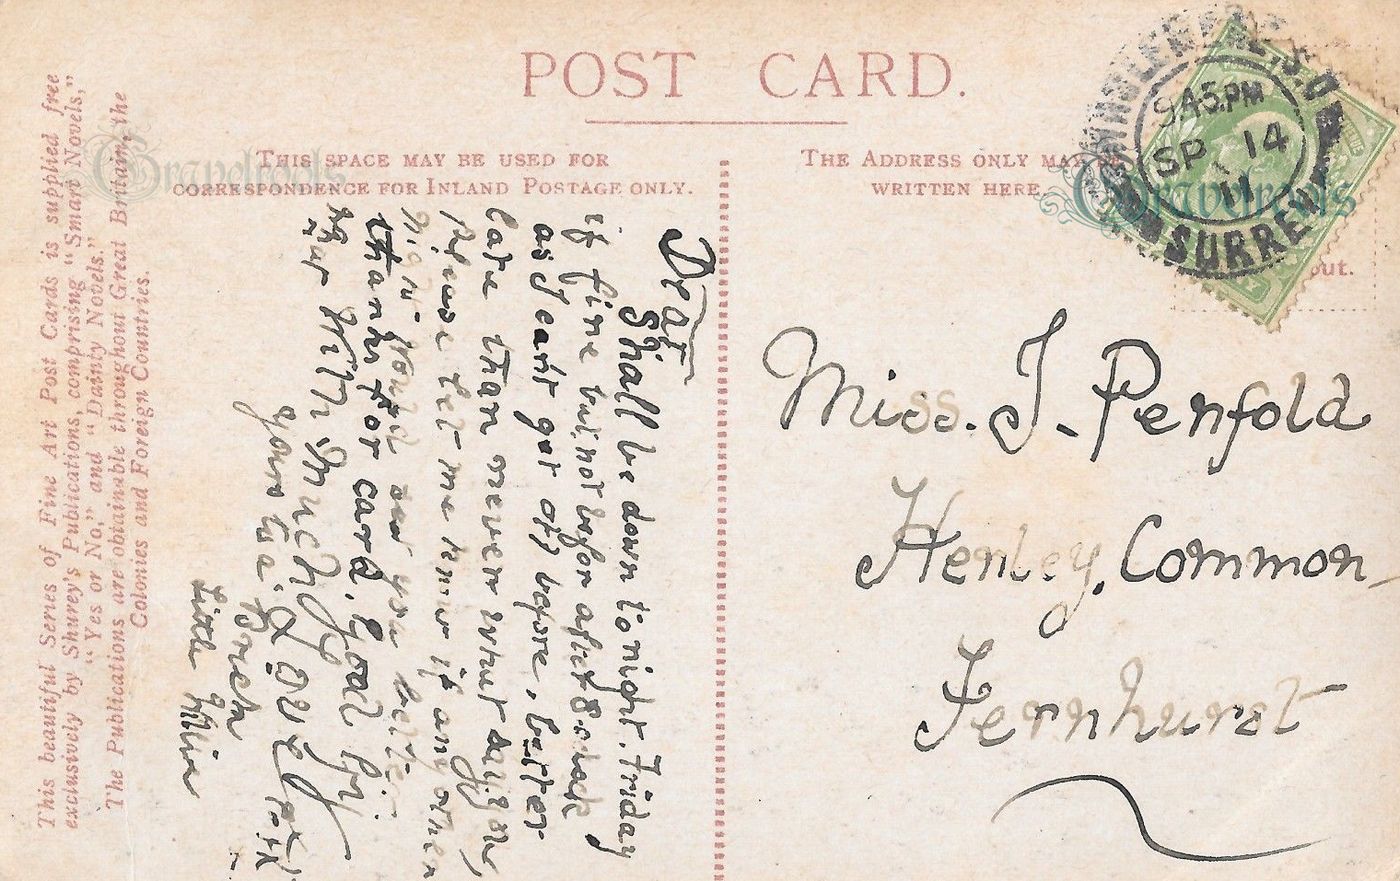 POST CARD.
THIS SPACE MAY BE USED FOR
CORRESPONDENCE FOR INLAND POSTAGE ONLY.
THE ADDRESS ONLY MAY BE
WRITTEN HERE
out.
9.45.PM
SP 14
11
SURREY
Gravelroots
Gravelroots
This beautiful Series of Fine Art Post Cards is supplied free
exclusively by Shurey's Publications, comprising "Smart Novels,"
"Yes or No," and "Dainty Novels."
The Publications are obtainable throughout Great Britain, the
Colonies and Foreign Countries.
Dear
Shall be down tonight. Friday
if fine but not before after 8 o'clock
as I can't get off before, better
late than never what say you
Please let me know if any other
night would suit you better
thanks for card. Good by
With Much Love
yours
Little
Miss. J. Penfold
Henley. Common
Fernhurst